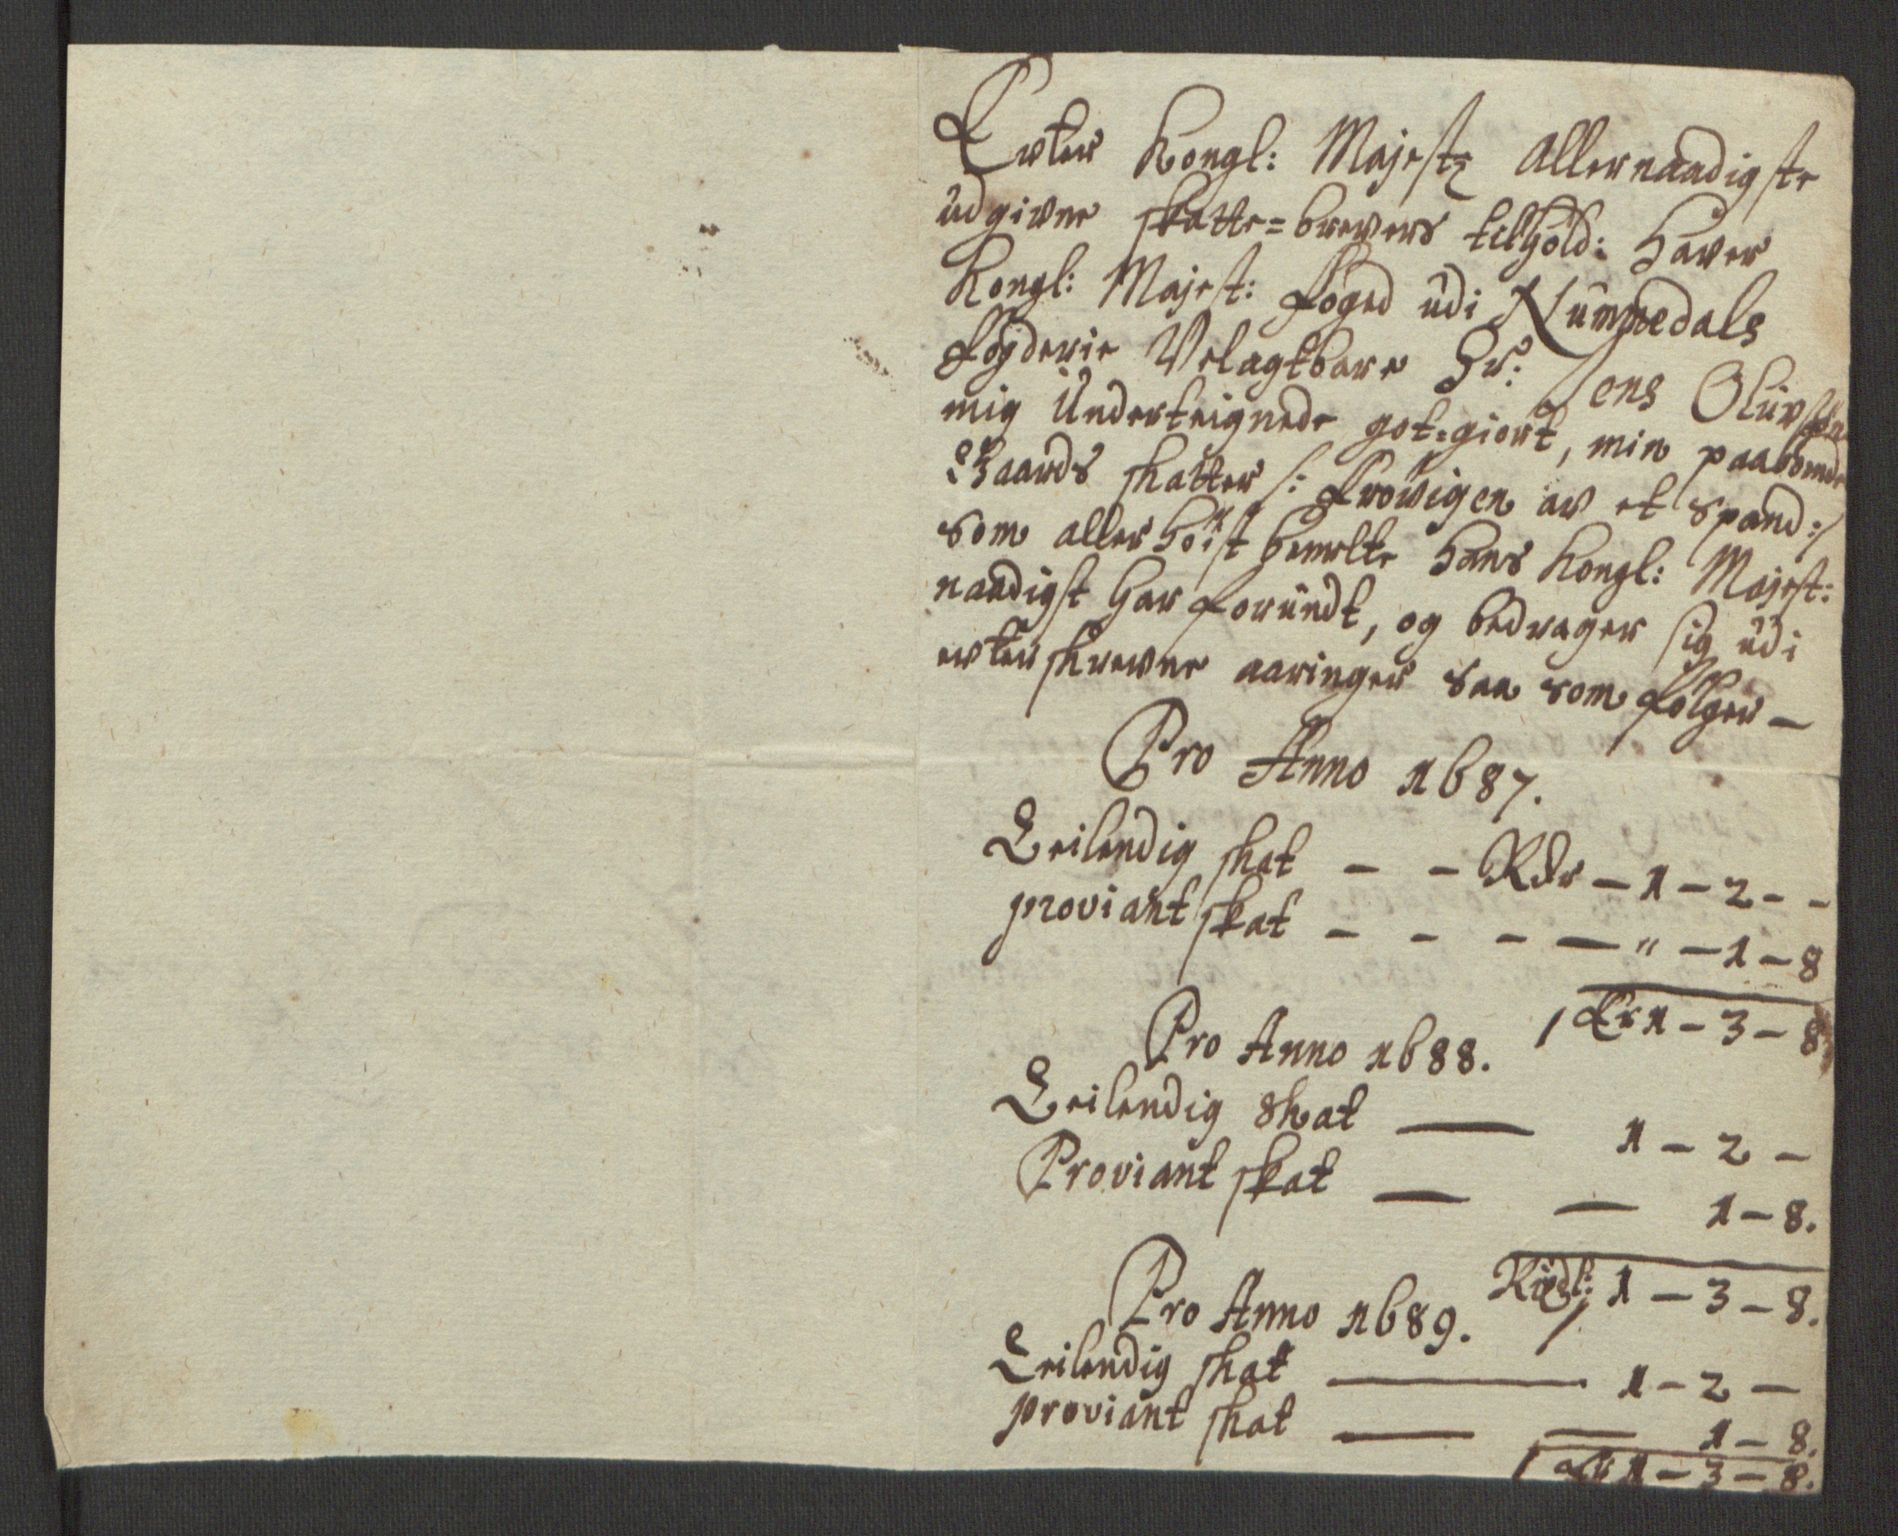 Evter Kongl: Majestz Allernaadigste
udgivne skatte=brevers tilhold: haver
Kongl: Majest: foged udi Nummedals
fogderie Velagtbare Hr: Jens Oluvsøn
mig Underteignede got=giort, min paaboende
Gaards skatter /: Frøvigen av et spand :/
som allerhøist bemelte hans Kongl: Majest:
naadigst har forundt, og bedrager sig udi
evterskrevne aaringer saa som følger —
Pro Anno 1687.
Leilendig skat — — Rdr — 1 — 2 - -
proviant skat - - - — " — 1 — 8
Er 1 — 3 — 8
Pro Anno 1688.
Leilendig skat — 1 — 2 —
Proviant skat — — 1 — 8.
Rixdl: 1 — 3 — 8.
Pro Anno 1689.
Leilendig skat — 1 — 2 —
proviant skat — — 1 — 8.
er 1 — 3 — 8.